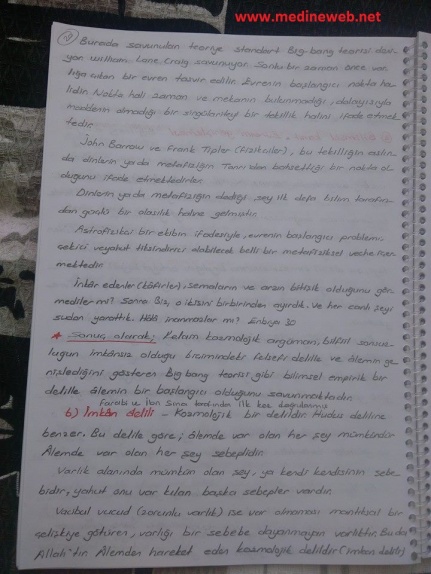 www.medineweb.net
20
Burada savunulan teoriye standart Big bang teorisi
William Lane Craig savunuyor. Sonlu bir zaman önce var
lığa çıkan bir evren tasvir edilir. Evrenin başlangıcı nokta ha
lidir. Nokta hali zaman ve mekanın bulunmadığı, dolayısıyla
maddenin olmadığı bir singülariteyi bir tekillik halini ifade etmek
tedir.
John Barrow ve Frank Tipler (Fizikçiler), bu tekilliğin aslın
da dinlerin ya da metafiziğin Tanrı'dan bahsettiği bir nokta ol
duğunu ifade etmektedirler.
Dinlerin ya da metafiziğin dediği şey ilk defa bilim tarafın
dan sanki bir olasılık haline gelmiştir.
Astrofizikçi bir ekibin ifadesiyle, evrenin başlangıcı problemi
çekici veyahut tiksindirici olabilecek belli bir metafiziksel veche
mektedir.
İnkâr edenler (kâfirler), semaların ve arzın bitişik olduğunu gör
mediler mi? Sonra Biz, o ikisini birbirinden ayırdık. Ve her canlı şeyi
sudan yarattık. Hâlâ inanmazlar mı? Enbiya 30
* Sonuç olarak; Kelam kozmolojik argümanı, bilfiil sonsuz
luğun imkânsız olduğu biçimindeki felsefi delille ve âlemin ge
nişlediğini gösteren Big bang teorisi gibi bilimsel empirik bir
delille âlemin bir başlangıcı olduğunu savunmaktadır.
Farabi ve İbn Sina tarafından ilk kez
6) İmkân delili - Kozmolojik bir delildir. Hudus deliline
benzer. Bu delile göre; âlemde var olan her şey mümkündür
Âlemde var olan her şey sebeplidir.
Varlık alanında mümkün olan şey, ya kendi kendisinin sebe
bidir, yahut onu var kılan başka sebepler vardır.
Vacibul vucud (zorunlu varlık) ise var olmaması mantıksal bir
çelişkiye götüren, varlığı bir sebebe dayanmayan varlıktır. Bu da
Allah'tır Âlemden hareket eden kozmolojik delildir (imkan delili)